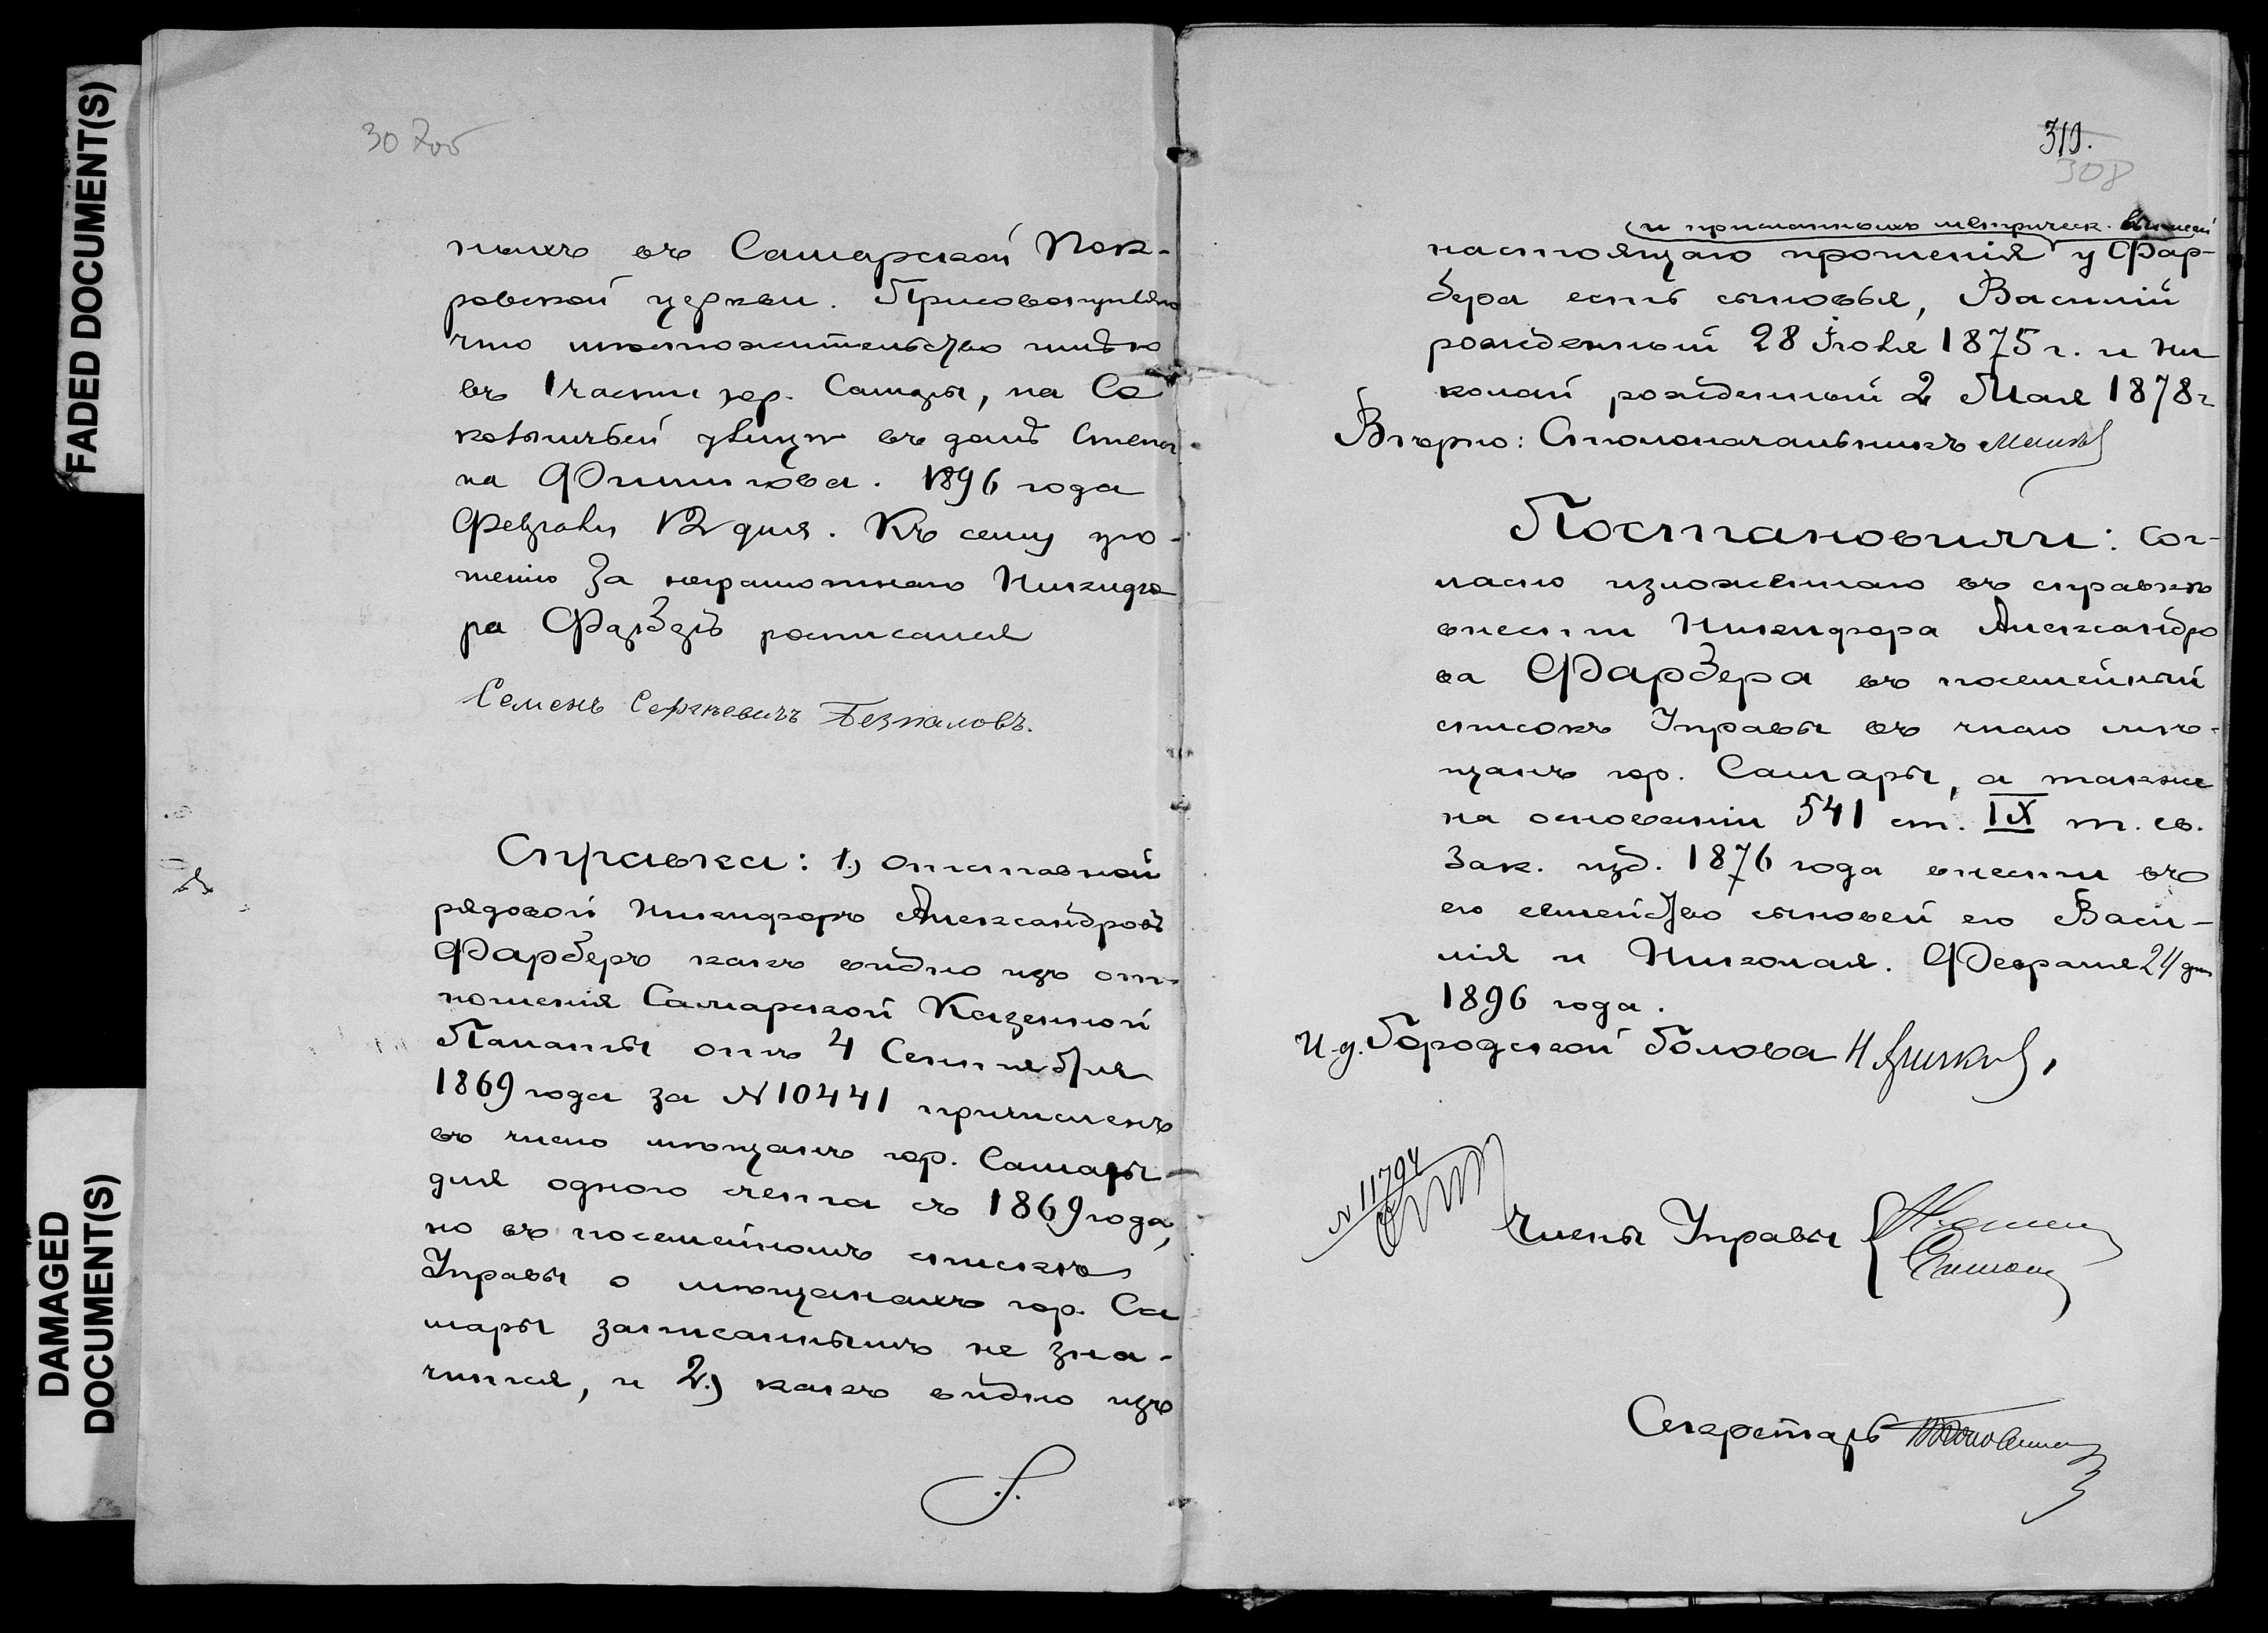 FADED DOCUMENT(S)
DAMAGED
DOCUMENT(S)
307об
ныхъ въ Самарской Пок-
ровской церкви. Присовокупляю
что местожительство имѣю
въ 1 части гор. Самары, на Со
кольничьей улицѣ въ домѣ Степа
на Филипова. 1896 года
Февраля 12 дня. Къ сему про-
шенію за неграмотнаго Никифо
ра Фарберъ росписался
Семенъ Сергѣевичъ Безпаловъ.
Справка: 1.) отставной
рядовой Никифоръ Александровъ
Фарберъ какъ видно изъ от-
ношенія Самарской Казенной
Палаты отъ 4 Сентября
1869 года за № 10441 причисленъ
въ число мѣщанъ гор. Самары
для одного счета съ 1869 года,
но въ посемейномъ спискѣ
Управы о мѣщанахъ гор. Са
мары записаннымъ не зна-
чится, и 2.) какъ видно изъ
319.
308
и присланныхъ метрическ.
настоящаго прошенія у Фар-
бера есть сыновья, Василій
рожденный 28 Іюля 1875 г. и Ни
колай рожденный 2 Мая 1878 г
Вѣрно: Столоначальникъ
Постановили: Сог-
ласно изложеннаго въ справкѣ
внести Никифора Александро
ва Фарбера въ посемейный
списокъ Управы въ число мѣ-
щанъ гор. Самары, а также
на основаніи 541 ст. IX т. св.
Зак. изд. 1876 года внести въ
его семейство сыновей его Васи-
лія и Николая. Февраля 24 дня
1896 года.
И.д. Городской Голова
№ 11794
Члены Управы
Секретарь